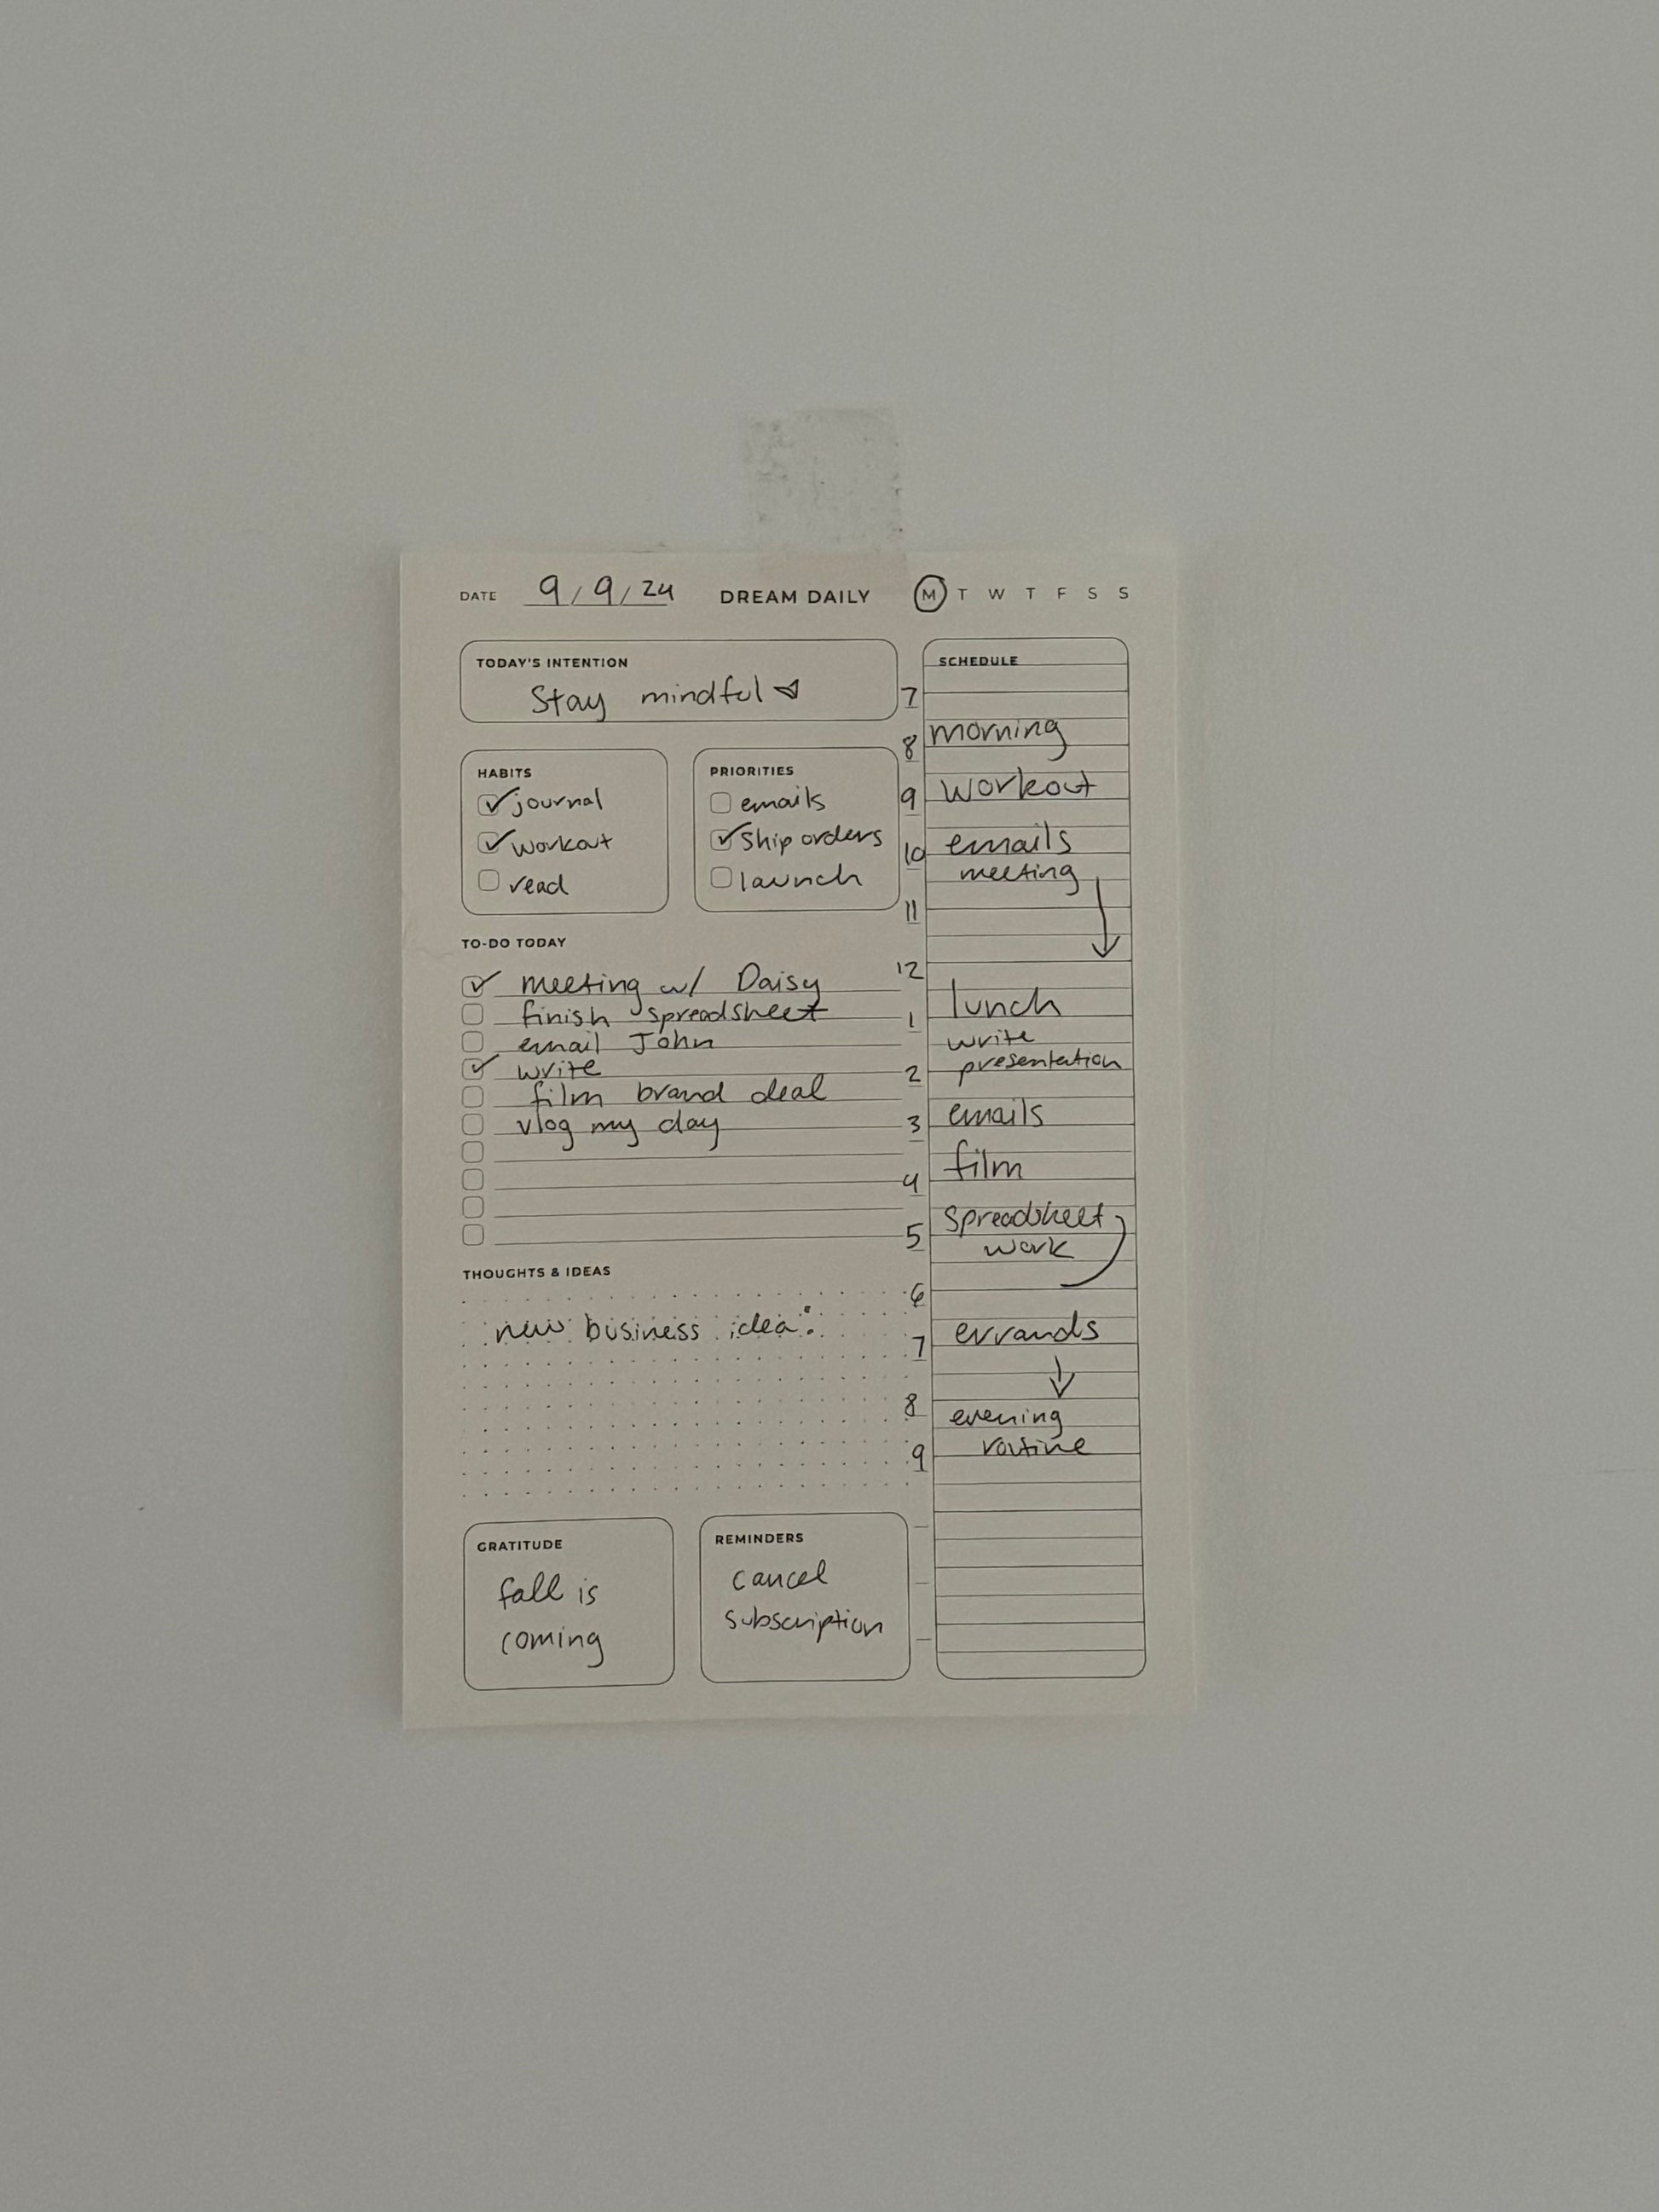 DATE 9/9/24 DREAM DAILY M T W T F S S
TODAY'S INTENTION
Stay mindful
HABITS
journal
workout
read
PRIORITIES
emails
ship orders
launch
TO-DO TODAY
meeting w/ Daisy
finish spreadsheet
email John
write
film brand deal
vlog my day
THOUGHTS & IDEAS
new business idea:
GRATITUDE
fall is
coming
REMINDERS
cancel
subscription
SCHEDULE
7
8 morning
9 workout
10 emails
meeting
11
12
lunch
1
write
2 presentation
3 emails
4 film
spreadsheet
5 work
6
7 errands
8
evening
9 routine